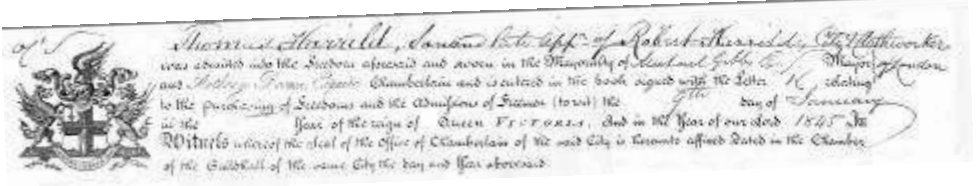 Thomas Horrild, Son and late App. of Robert Horrild, Cit & Clothworker of London
was admitted into the Freedom aforesaid and sworn in the Mayoralty of Michael Gibbs Esq. Mayor
and Anthony Brown Esquire Chamberlain and is entered in the book signed with the Letter K relating
to the purchasing of Freedoms and the Admissions of Freemen (to wit) the 9th day of January
in the Year of the reign of QUEEN VICTORIA, And in the Year of our Lord 1845 In
Witness whereof the Seal of the Office of Chamberlain of the said City is hereunto affixed Dated in the Chamber
of the Guildhall of the same City the day and Year abovesaid